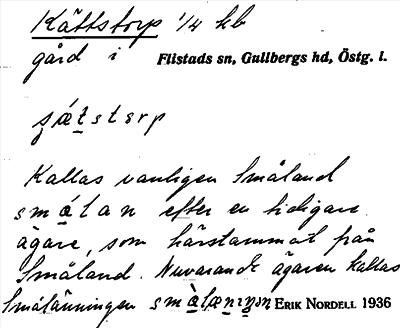 Kättstorp 1/4 kb
gård i Flistads sn, Gullbergs hd, Östg. l.
Kallas vanligen Småland
smålan efter en tidigare
ägare, som härstammat från
Småland. Nuvarande ägaren kallas
Smålänningen ERIK NORDELL 1936